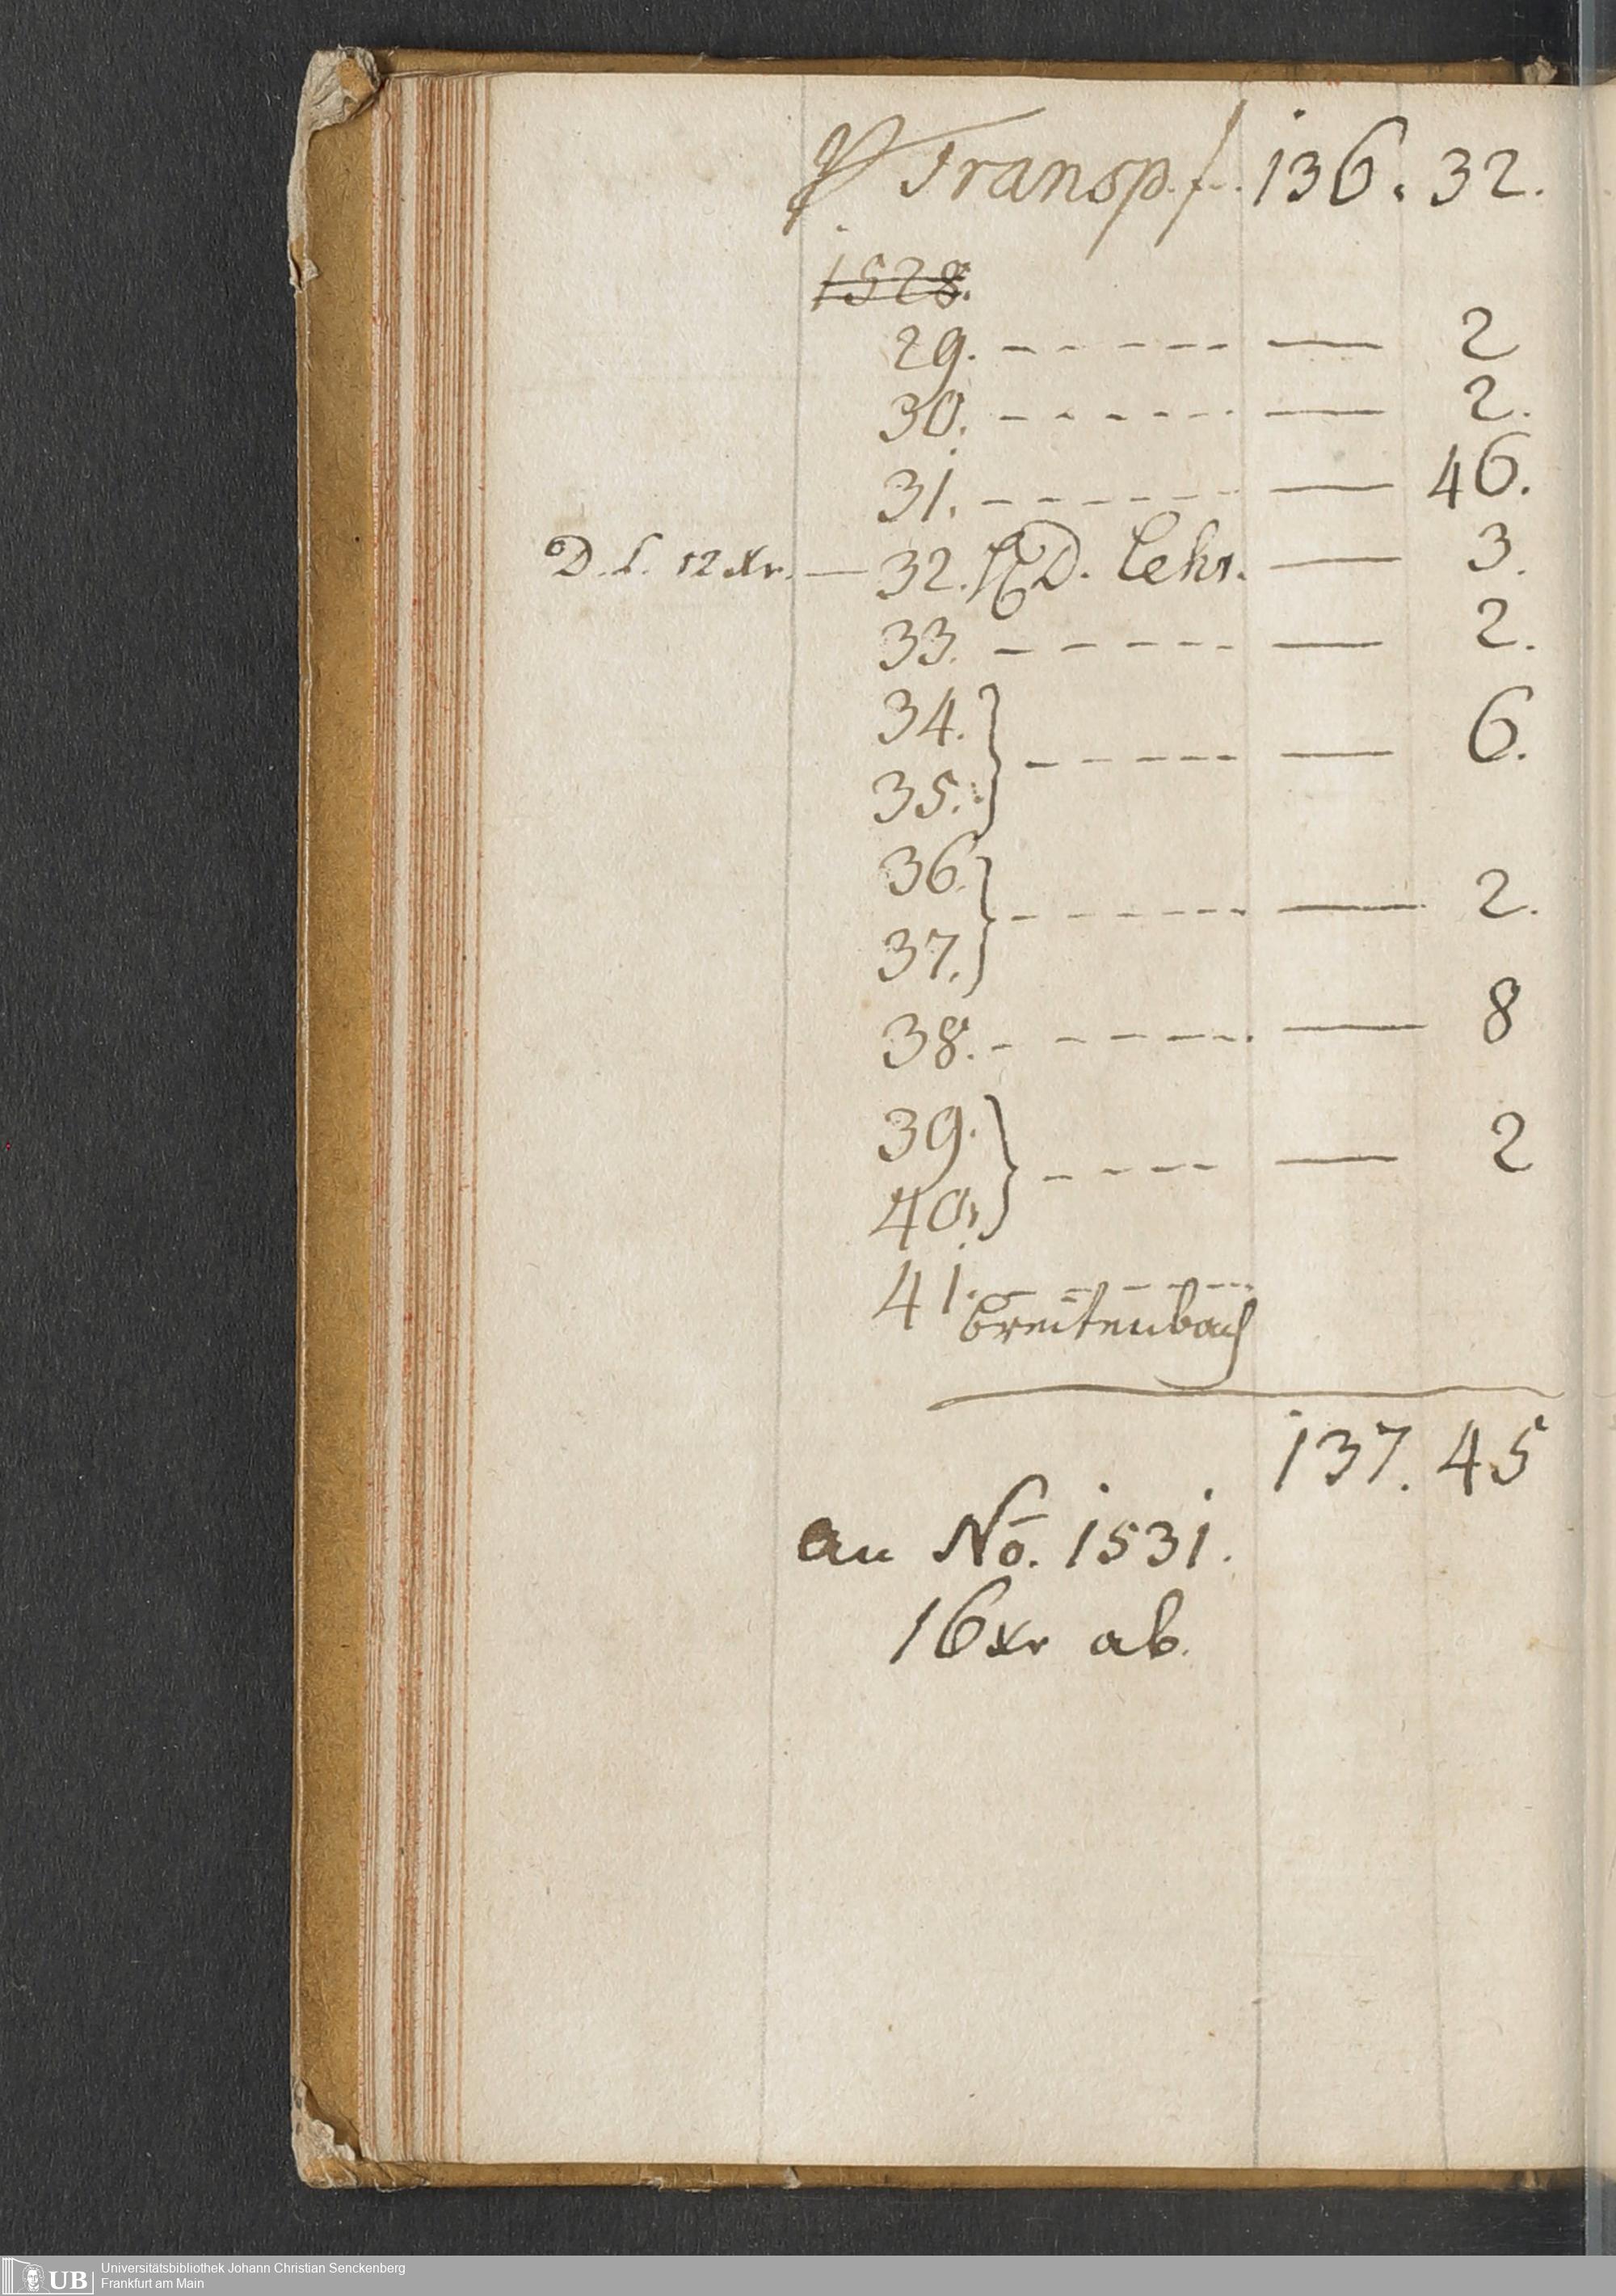 Transp. f. 136. 32.
1528.
29. - - - - - — 2
30. - - - - - — 2.
31. - - - - - — 46.
D. L. 12 Xr. — 32. H D. Lehr. — 3.
33. - - - - - — 2.
34.
35. } - - - - - — 6.
36.
37. } - - - - - — 2.
38. - - - - - — 8
39.
40. } - - - - — 2
41. - - - - -
Breitenbach
137. 45
an No. 1531.
16 Xr ab.
UB
Universitätsbibliothek Johann Christian Senckenberg
Frankfurt am Main